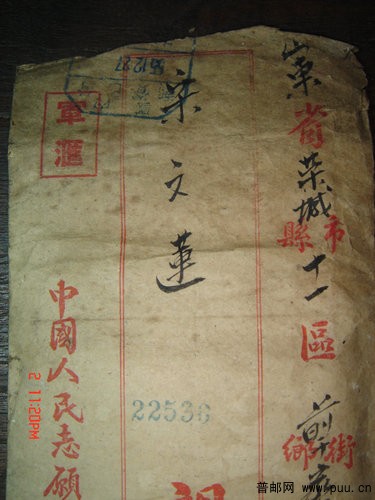 山東省荣城縣市十一區前鄉街
宋文蓮
22536
軍滙
中國人民志願
2 11:20PM
普邮网 www.puu.cn